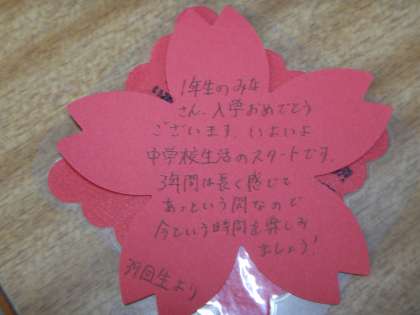 1年生のみな
さん、入学おめでとう
ございます。いよいよ
中学校生活のスタートです。
3年間は長く感じて
あっという間なので
今という時間を楽しみ
ましょう!
39回生より